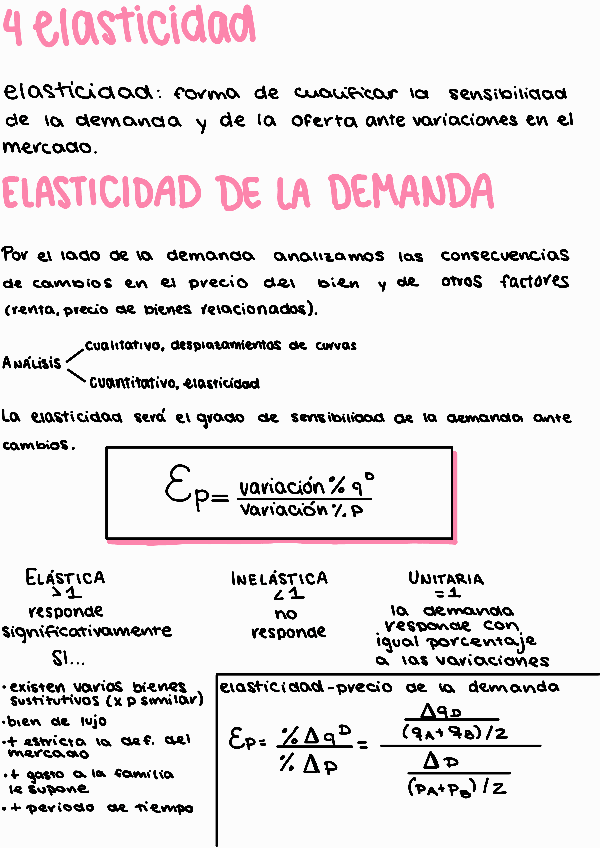 4 elasticidad
elasticidad: forma de cualificar la sensibilidad
de la demanda y de la oferta ante variaciones en el
mercado.
ELASTICIDAD DE LA DEMANDA
Por el lado de la demanda analizamos las consecuencias
de cambios en el precio del bien y de otros factores
(renta, precio de bienes relacionados).
ANÁLISIS
cualitativo, desplazamientos de curvas
cuantitativo, elasticidad
La elasticidad será el grado de sensibilidad de la demanda ante
cambios.
Ɛp = variación % qᴰ
variación % P
ELÁSTICA
>1
responde
significativamente
SI...
INELÁSTICA
<1
no
responde
UNITARIA
=1
la demanda
responde con
igual porcentaje
a las variaciones
· existen varios bienes
sustitutivos (x p similar)
· bien de lujo
· + estricta la def. del
mercado
· + gasto a la familia
le supone
· + periodo de tiempo
elasticidad-precio de la demanda
Ɛp = % Δqᴰ / % Δp =
ΔqD
(qA+qB)/2
Δp
(pA+pB)/2